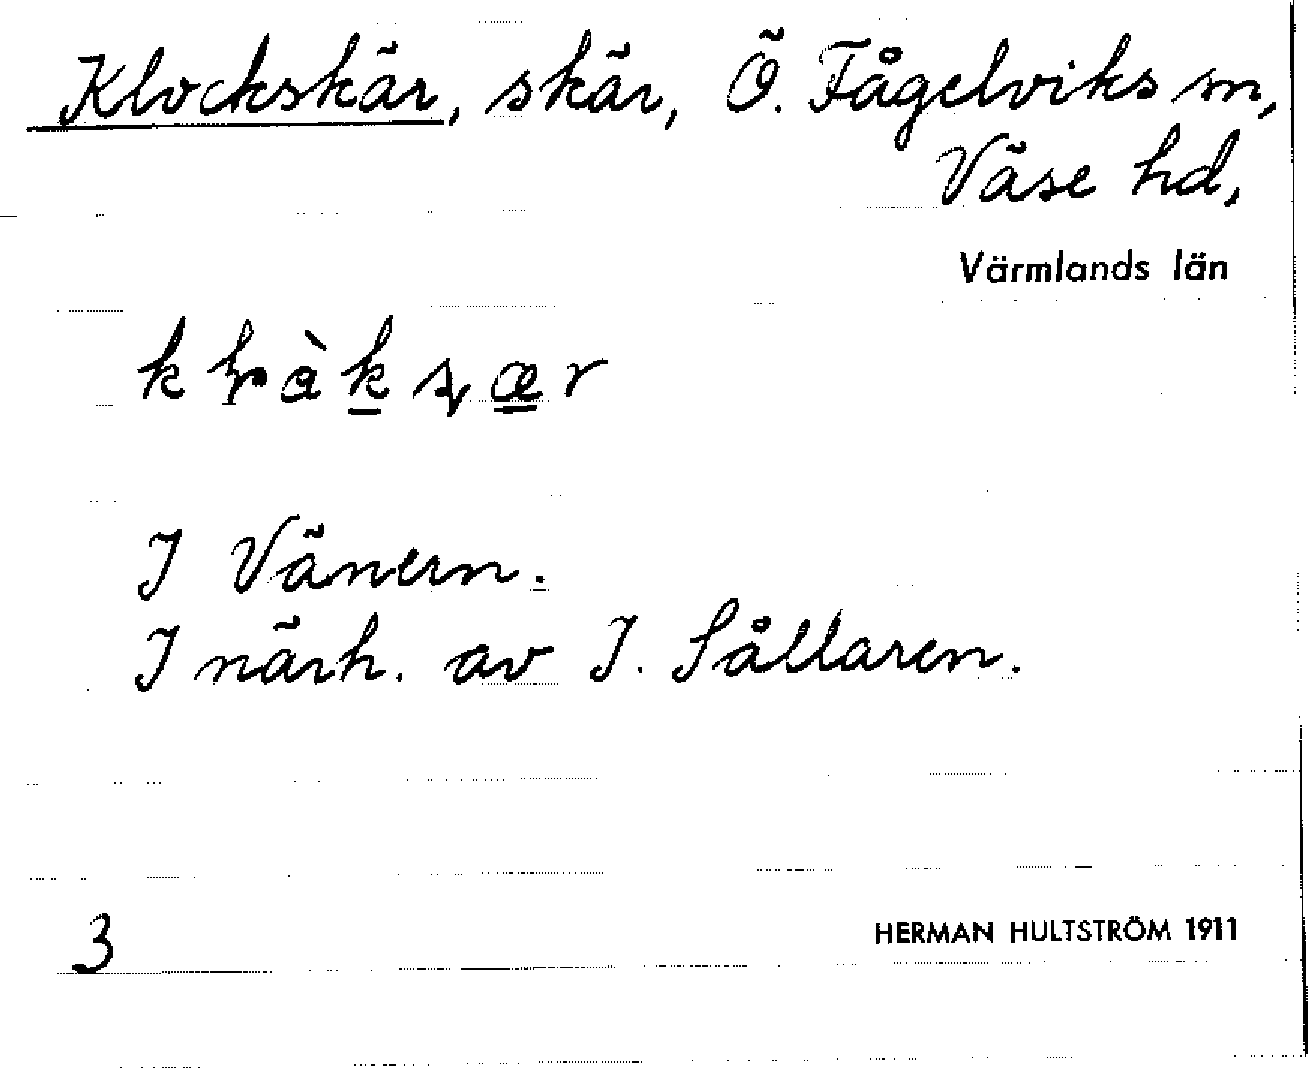 Klockskär, skär, Ö. Fågelviks sn,
Väse hd,
Värmlands län
I Vänern.
I närh. av I. Sållaren.
3
HERMAN HULTSTRÖM 1911